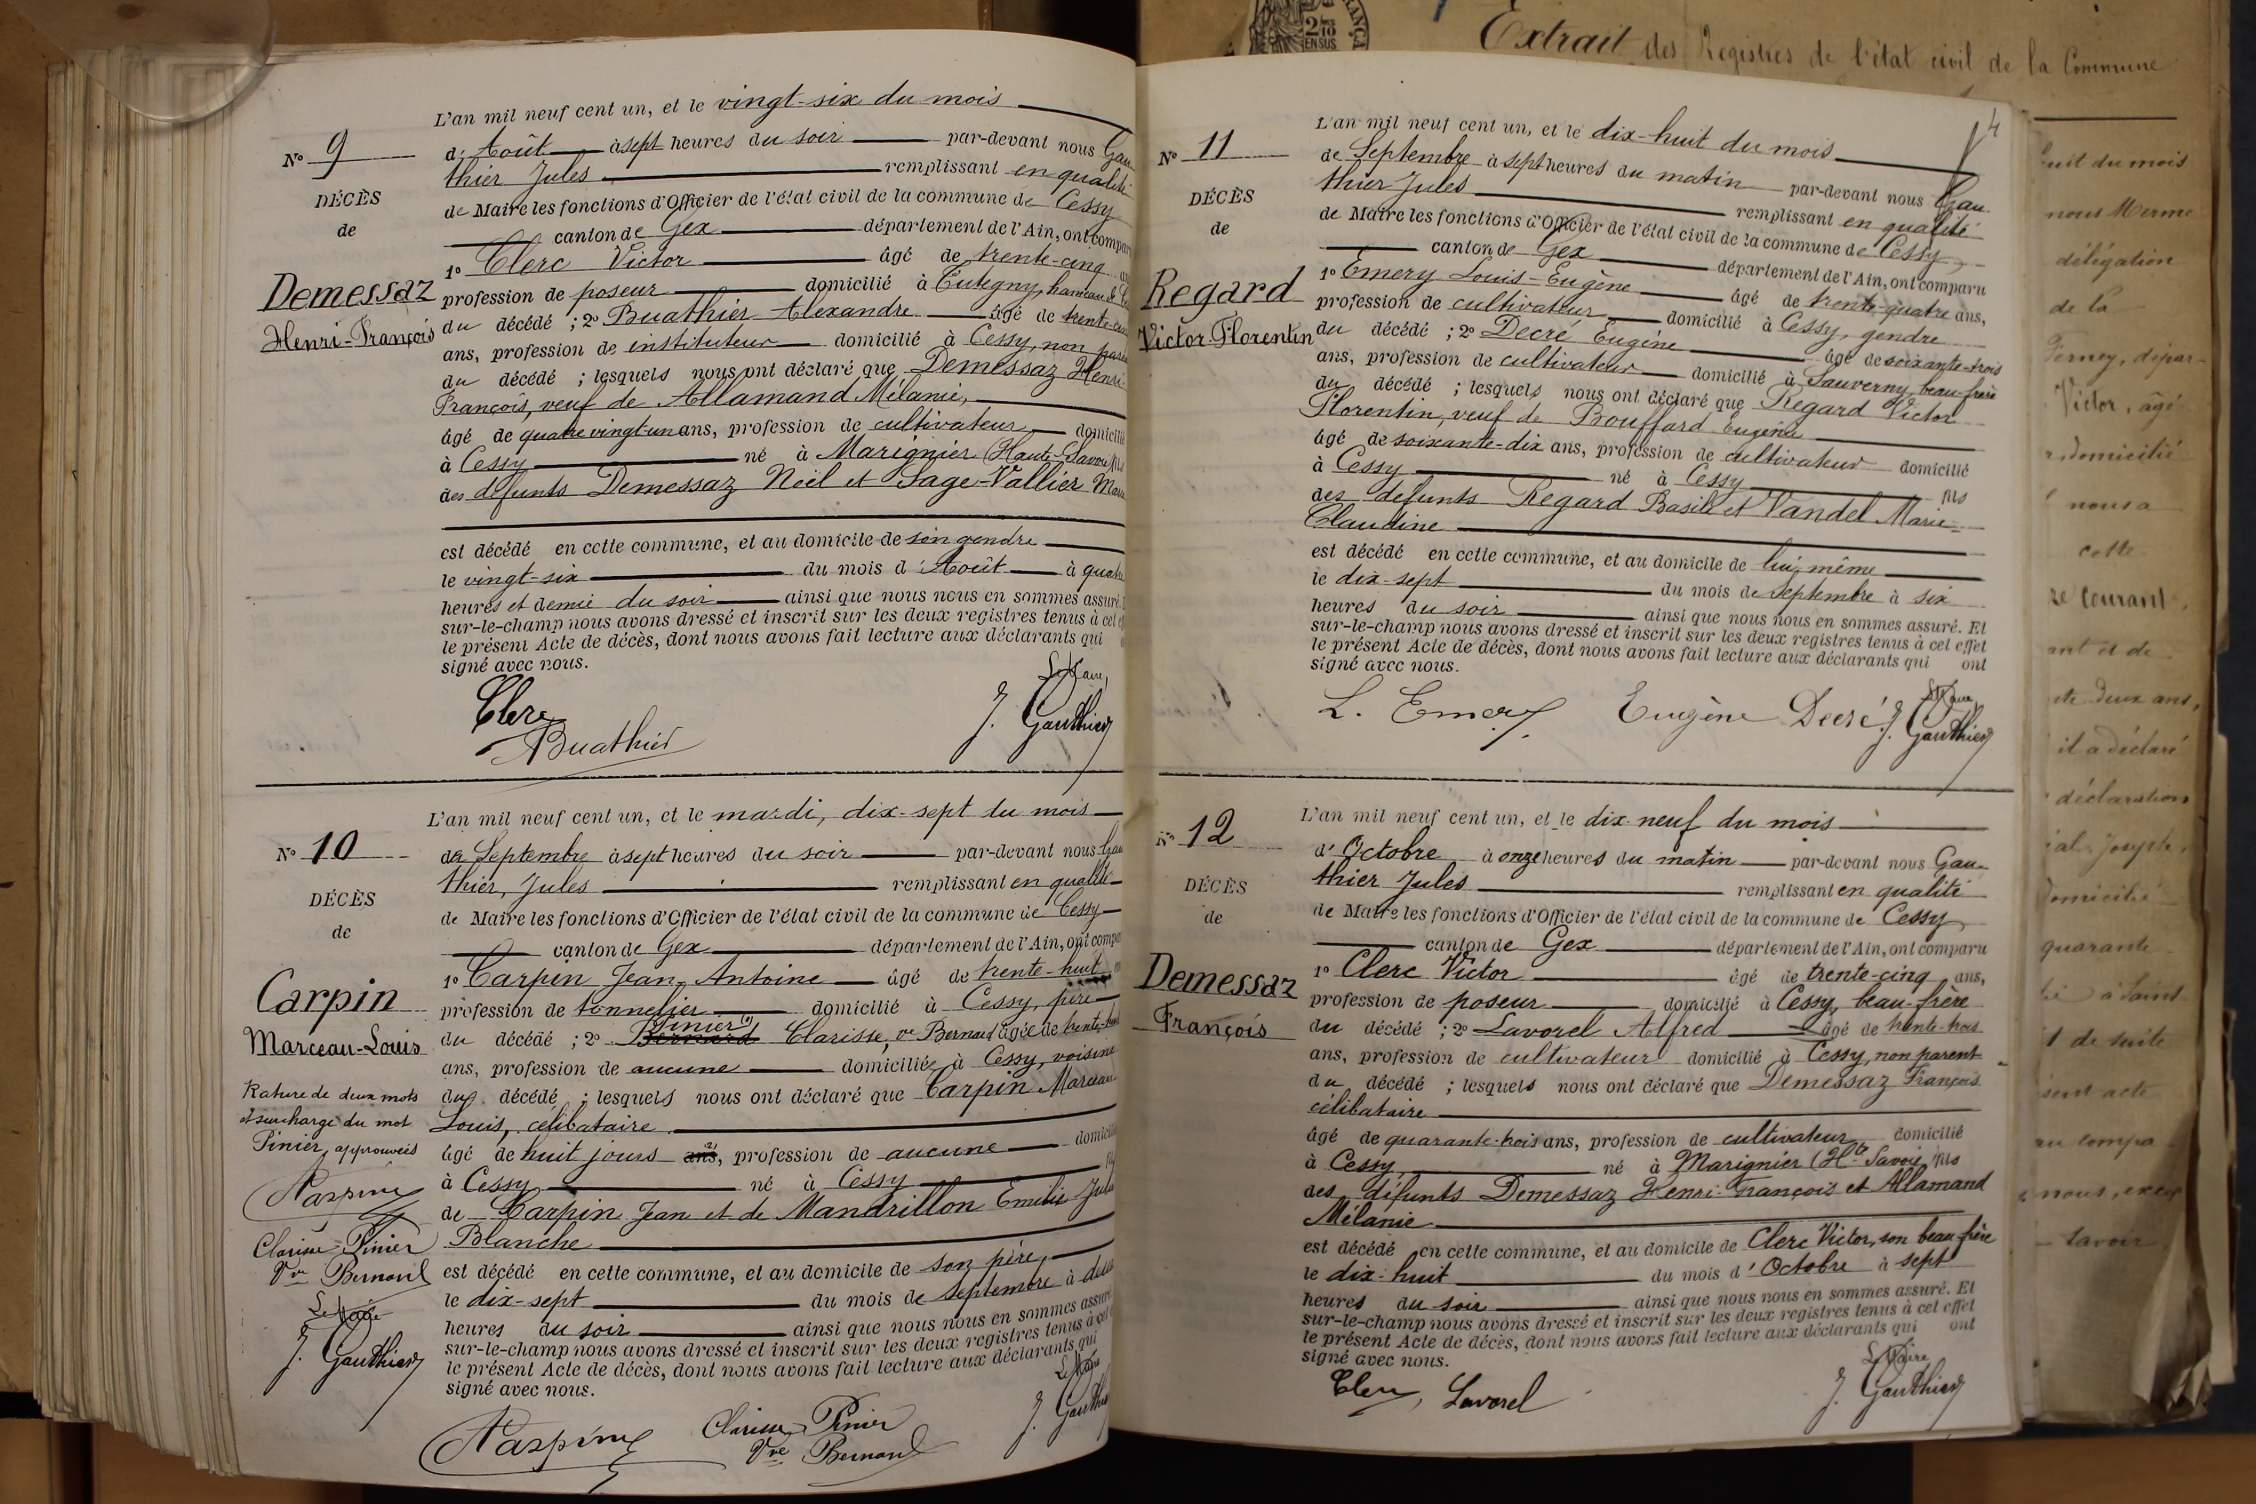 N° 9
DÉCÈS
de
Demessaz
Henri-François
L'an mil neuf cent un, et le vingt-six du mois
d' Août à sept heures du soir par-devant nous Gau
thier Jules remplissant en qualité
de Maire les fonctions d'Officier de l'état civil de la commune de Cessy
canton de Gex département de l'Ain, ont compar
1° Clerc Victor âgé de trente-cinq
profession de poseur domicilié à Tutegny, hameau de
du décédé ; 2° Buathier Alexandre âgé de trente-
ans, profession de instituteur domicilié à Cessy, non paren
du décédé ; lesquels nous ont déclaré que Demessaz Henri
François, veuf de Allamand Mélanie,
âgé de quatre vingt-un ans, profession de cultivateur domicilié
à Cessy né à Marignier (Haute-Savoie) fils
des défunts Demessaz Noël et Sage-Vallier Marie
est décédé en cette commune, et au domicile de son gendre
le vingt-six du mois d'Août à quatre
heures et demie du soir ainsi que nous nous en sommes assuré.
sur-le-champ nous avons dressé et inscrit sur les deux registres tenus à cet
le présent Acte de décès, dont nous avons fait lecture aux déclarants qui
signé avec nous.
Le Maire,
Clerc J. Gauthier
Buathier
N° 10
DÉCÈS
de
Carpin
Marceau-Louis
Rature de deux mots
et surcharge du mot
Pinier, approuvées
Clarisse Pinier
Vve Bernard
Le Maire
J. Gauthier
L'an mil neuf cent un, et le mardi, dix-sept du mois
de Septembre à sept heures du soir par-devant nous Gau
thier, Jules remplissant en qualité
de Maire les fonctions d'Officier de l'état civil de la commune de Cessy
canton de Gex département de l'Ain, ont compar
1° Carpin Jean-Antoine âgé de trente-huit
profession de tonnelier domicilié à Cessy, père
du décédé ; 2° Bernard Pinier Clarisse, ve Bernard âgée de trente-huit
ans, profession de aucune domiciliée à Cessy, voisine
du décédé ; lesquels nous ont déclaré que Carpin Marceau
Louis, célibataire
âgé de huit jours ans, profession de aucune domicilié
à Cessy né à Cessy fils
de Carpin Jean et de Mandrillon Emilie Julie
Blanche
est décédé en cette commune, et au domicile de son père,
le dix-sept du mois de Septembre à deux
heures du soir ainsi que nous nous en sommes assuré
sur-le-champ nous avons dressé et inscrit sur les deux registres tenus à cet
le présent Acte de décès, dont nous avons fait lecture aux déclarants qui
signé avec nous.
Le Maire
Clarisse Pinier J. Gauthier
Vve Bernard
4
N° 11
DÉCÈS
de
Regard
Victor Florentin
L'an mil neuf cent un, et le dix-huit du mois
de Septembre à sept heures du matin par-devant nous Gau
thier Jules remplissant en qualité
de Maire les fonctions d'Officier de l'état civil de la commune de Cessy,
canton de Gex département de l'Ain, ont comparu
1° Emery Louis-Eugène âgé de trente-quatre ans,
profession de cultivateur domicilié à Cessy, gendre
du décédé ; 2° Decré Eugène âgé de soixante-trois
ans, profession de cultivateur domicilié à Sauverny, beau-frère
du décédé ; lesquels nous ont déclaré que Regard Victor
Florentin, veuf de Bouffard Eugénie
âgé de soixante-dix ans, profession de cultivateur domicilié
à Cessy né à Cessy fils
des défunts Regard Basile et Vandel Marie
Claudine
est décédé en cette commune, et au domicile de lui-même
le dix-sept du mois de Septembre à six
heures du soir ainsi que nous nous en sommes assuré. Et
sur-le-champ nous avons dressé et inscrit sur les deux registres tenus à cet effet
le présent Acte de décès, dont nous avons fait lecture aux déclarants qui ont
signé avec nous.
Le Maire
L. Emery Eugène Decré J. Gauthier
N° 12
DÉCÈS
de
Demessaz
François
L'an mil neuf cent un, et le dix-neuf du mois
d'Octobre à onze heures du matin par-devant nous Gau
thier Jules remplissant en qualité
de Maire les fonctions d'Officier de l'état civil de la commune de Cessy
canton de Gex département de l'Ain, ont comparu
1° Clerc Victor âgé de trente-cinq ans,
profession de poseur domicilié à Cessy, beau-frère
du décédé ; 2° Lavorel Alfred âgé de trente-trois
ans, profession de cultivateur domicilié à Cessy, non parent
du décédé ; lesquels nous ont déclaré que Demessaz François
célibataire
âgé de quarante-trois ans, profession de cultivateur domicilié
à Cessy né à Marignier (Hte Savoie) fils
des défunts Demessaz Henri-François et Allamand
Mélanie
est décédé en cette commune, et au domicile de Clerc Victor, son beau-frère
le dix-huit du mois d'Octobre à sept
heures du soir ainsi que nous nous en sommes assuré. Et
sur-le-champ nous avons dressé et inscrit sur les deux registres tenus à cet effet
le présent Acte de décès, dont nous avons fait lecture aux déclarants qui ont
signé avec nous.
Le Maire
Clerc, Lavorel J. Gauthier
Extrait des Registres de l'état civil de la Commune
huit du mois
nous Merme
délégation
de la
Ferney, dépar-
Victor, âgé
domicilié
nous a
cette
courant,
ant et de
te deux ans,
il a déclaré
déclaration
Joseph,
domicilié
quarante
à Saint
de suite
sent acte
compa
nous, excep
Savoir